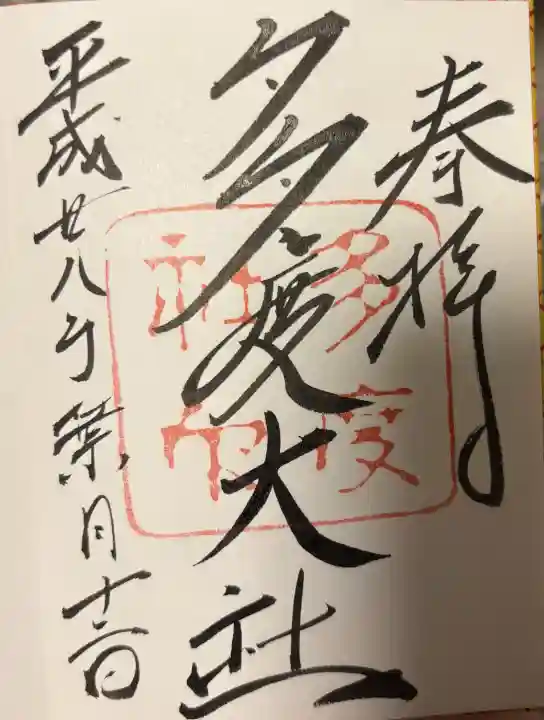 奉拝
多度大社
多度
社印
平成廿八年葉月十二日